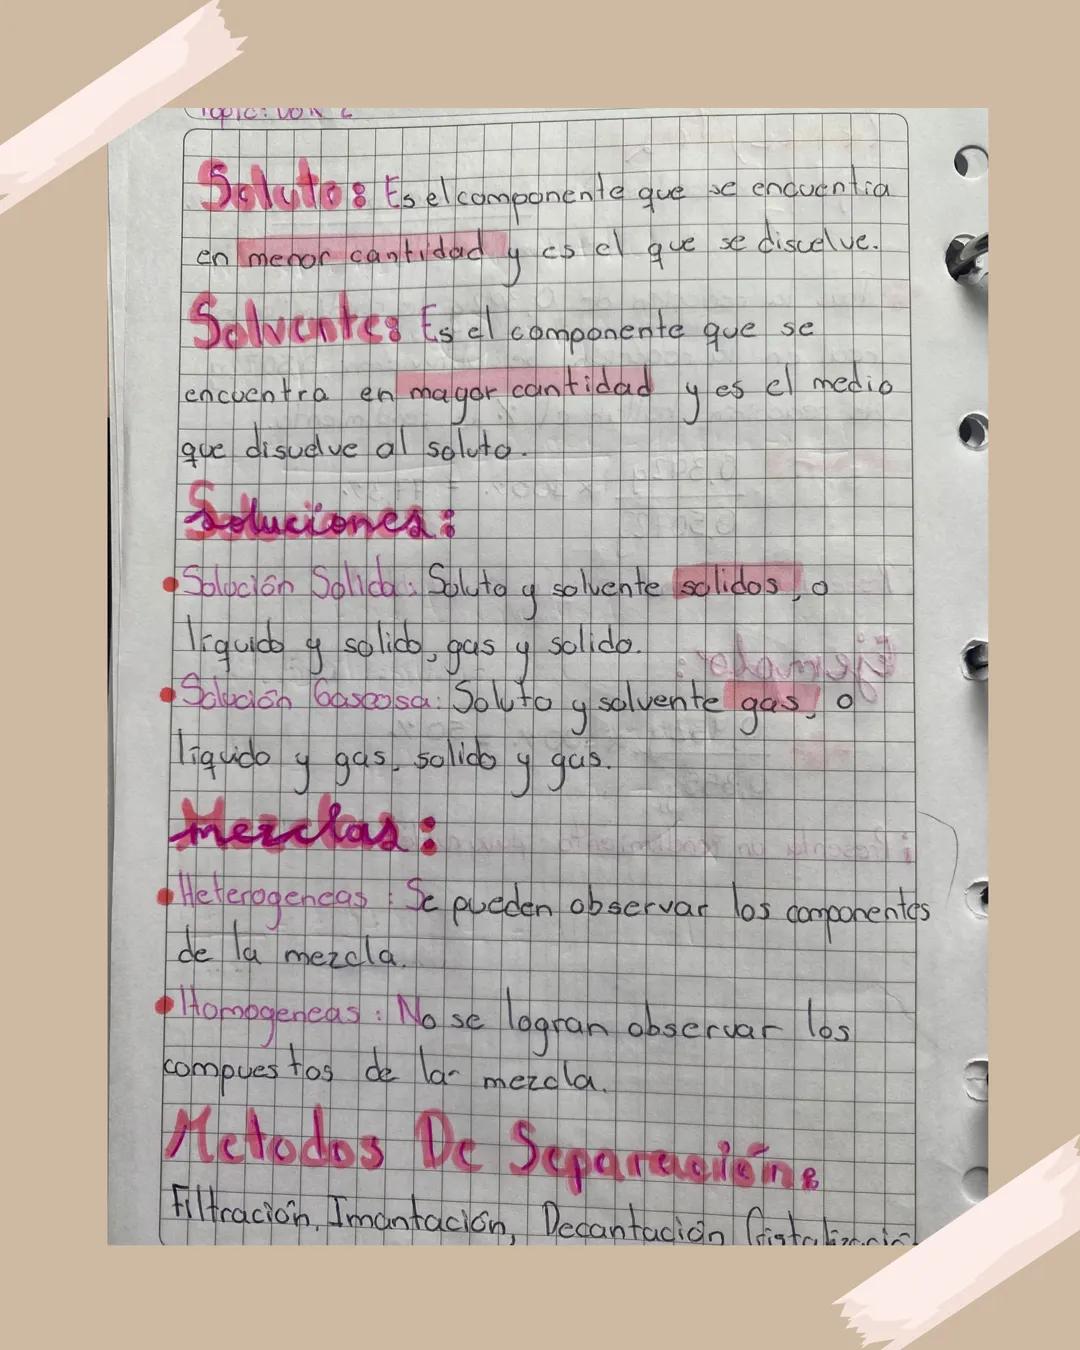 Topic:
Soluto: Es el componente que se encuentra
en menor cantidad y es el que se disuelve.
Solvente: Es el componente que se
encuentra en mayor cantidad y es el medio
que disuelve al soluto.
Soluciones:
•Solución Solida: Soluto y solvente solidos, o
líquido y solido, gas y solido.
•Solución Gaseosa: Soluto y solvente gas, o
líquido y gas, solido y gas.
Mezclas:
•Heterogeneas: Se pueden observar los componentes
de la mezcla.
•Homogeneas: No se logran observar los
compuestos de la mezcla.
Metodos De Separación:
Filtración, Imantación, Decantación